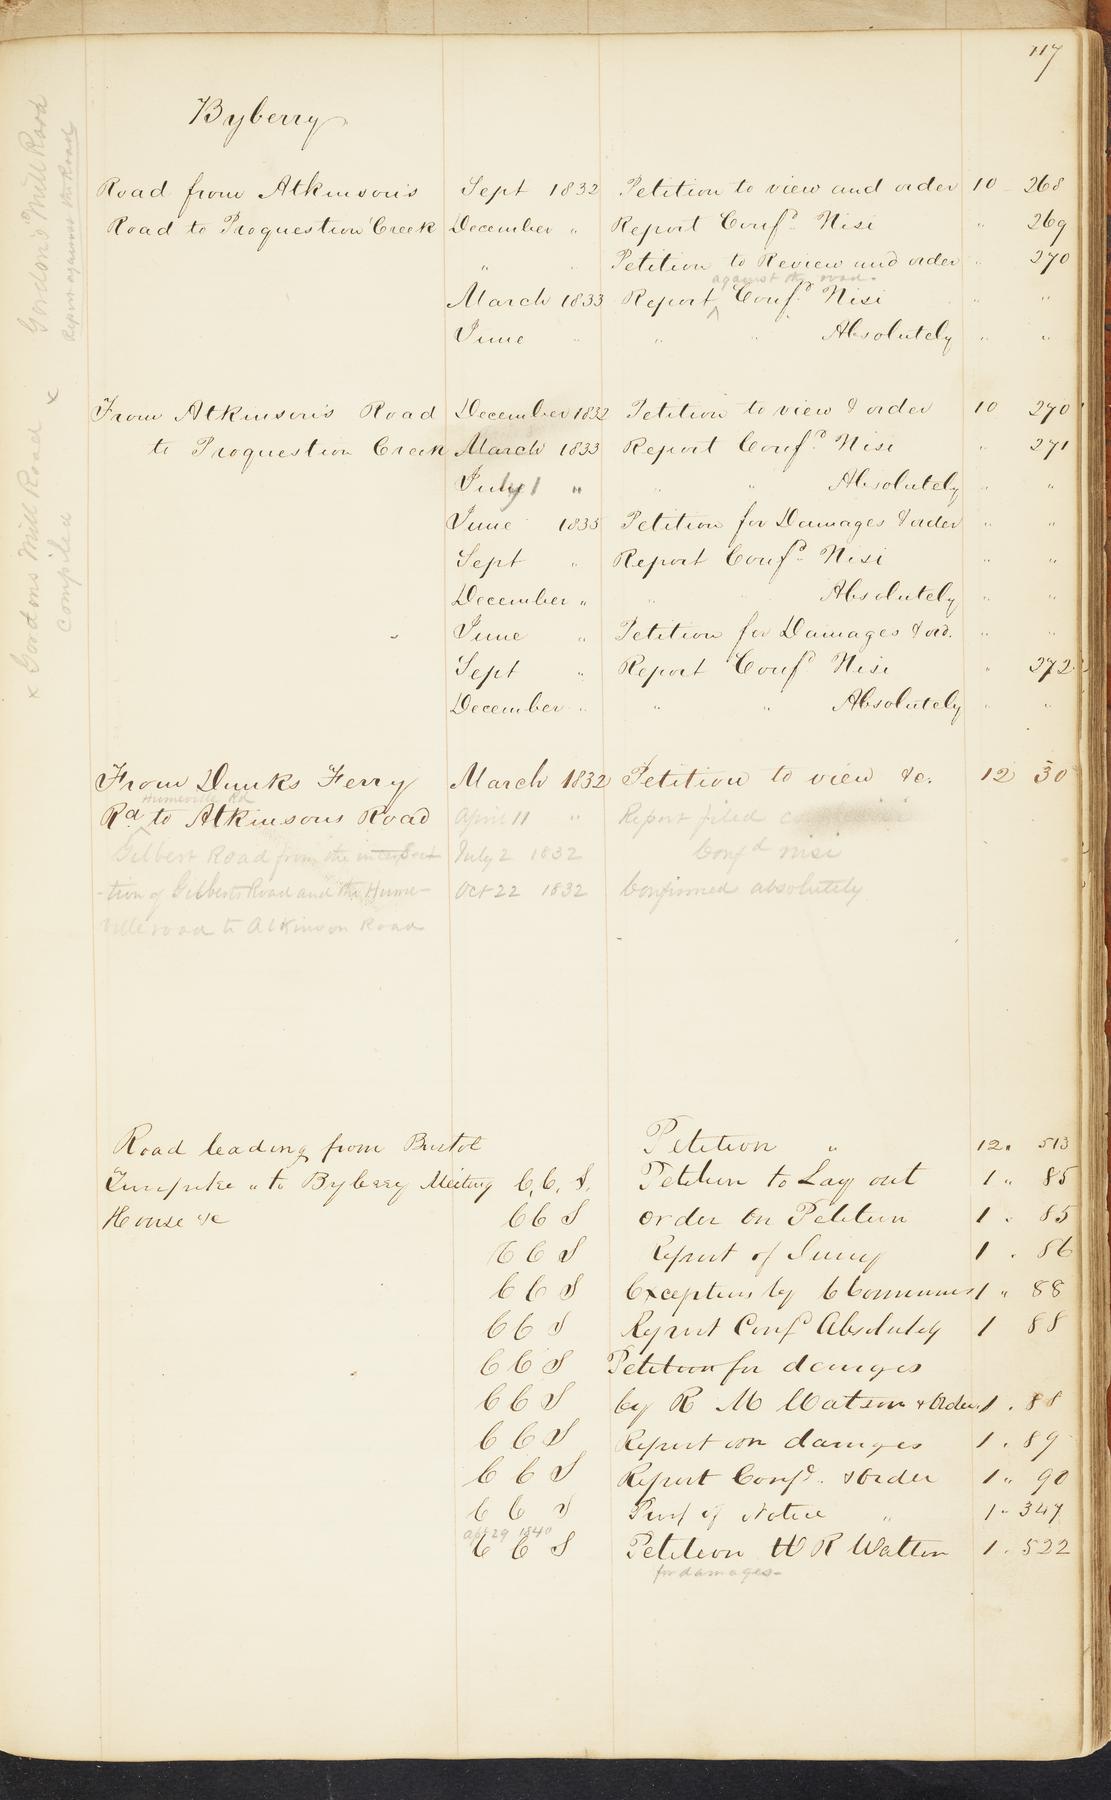 117
Byberry
Road from Atkinson's Sept 1832 Petition to view and order 10 268
Road to Poquestion Creek December " Report Conf.d Nisi " 269
" " Petition to Review and order " 270
against the road
March 1833 Report ^ Conf.d Nisi " "
June " " " Absolutely " "
From Atkinson's Road December 1832 Petition to view & order 10 270
to Poquestion Creek March 1833 Report Conf.d Nisi " 271
July 1 " " " Absolutely " "
June 1835 Petition for Damages & order " "
Sept " Report Conf.d Nisi " "
December " " " Absolutely " "
June " Petition for Damages & ord. " "
Sept " Report Conf.d Nisi " 272
December " " " Absolutely " "
From Dunks Ferry March 1832 Petition to view &c. 12 30
Humeville Rd
Rd to Atkinsons Road April 11 " Report filed
Gilbert Road from the intersect July 2 1832 Conf.d nisi
-tion of Gilberts Road and the Hume- Oct 22 1832 Confirmed absolutely
ville road to Atkinson Road
Road leading from Bristol Petition " 12 " 513
Turnpike " to Byberry Meeting C. C. S. Petition to Lay out 1 " 85
House &c C C S order on Petition 1 " 85
C C S Report of Survey 1 " 86
C C S Exceptions by C Commirs 1 " 88
C C S Report Conf.d Absolutely 1 88
C C S Petition for damges
C C S by R M Watson & Order 1 . 88
C C S Report on damges 1 . 89
C C S Report Conf.d & Order 1 " 90
C C S Prof of Notice " 1 - 347
Apl 29 1840
C C S Petition W R Watton 1 . 522
for damages-
Gordon's Mill Road
Report against the Road
x
x Gordons Mill Road
Compiled